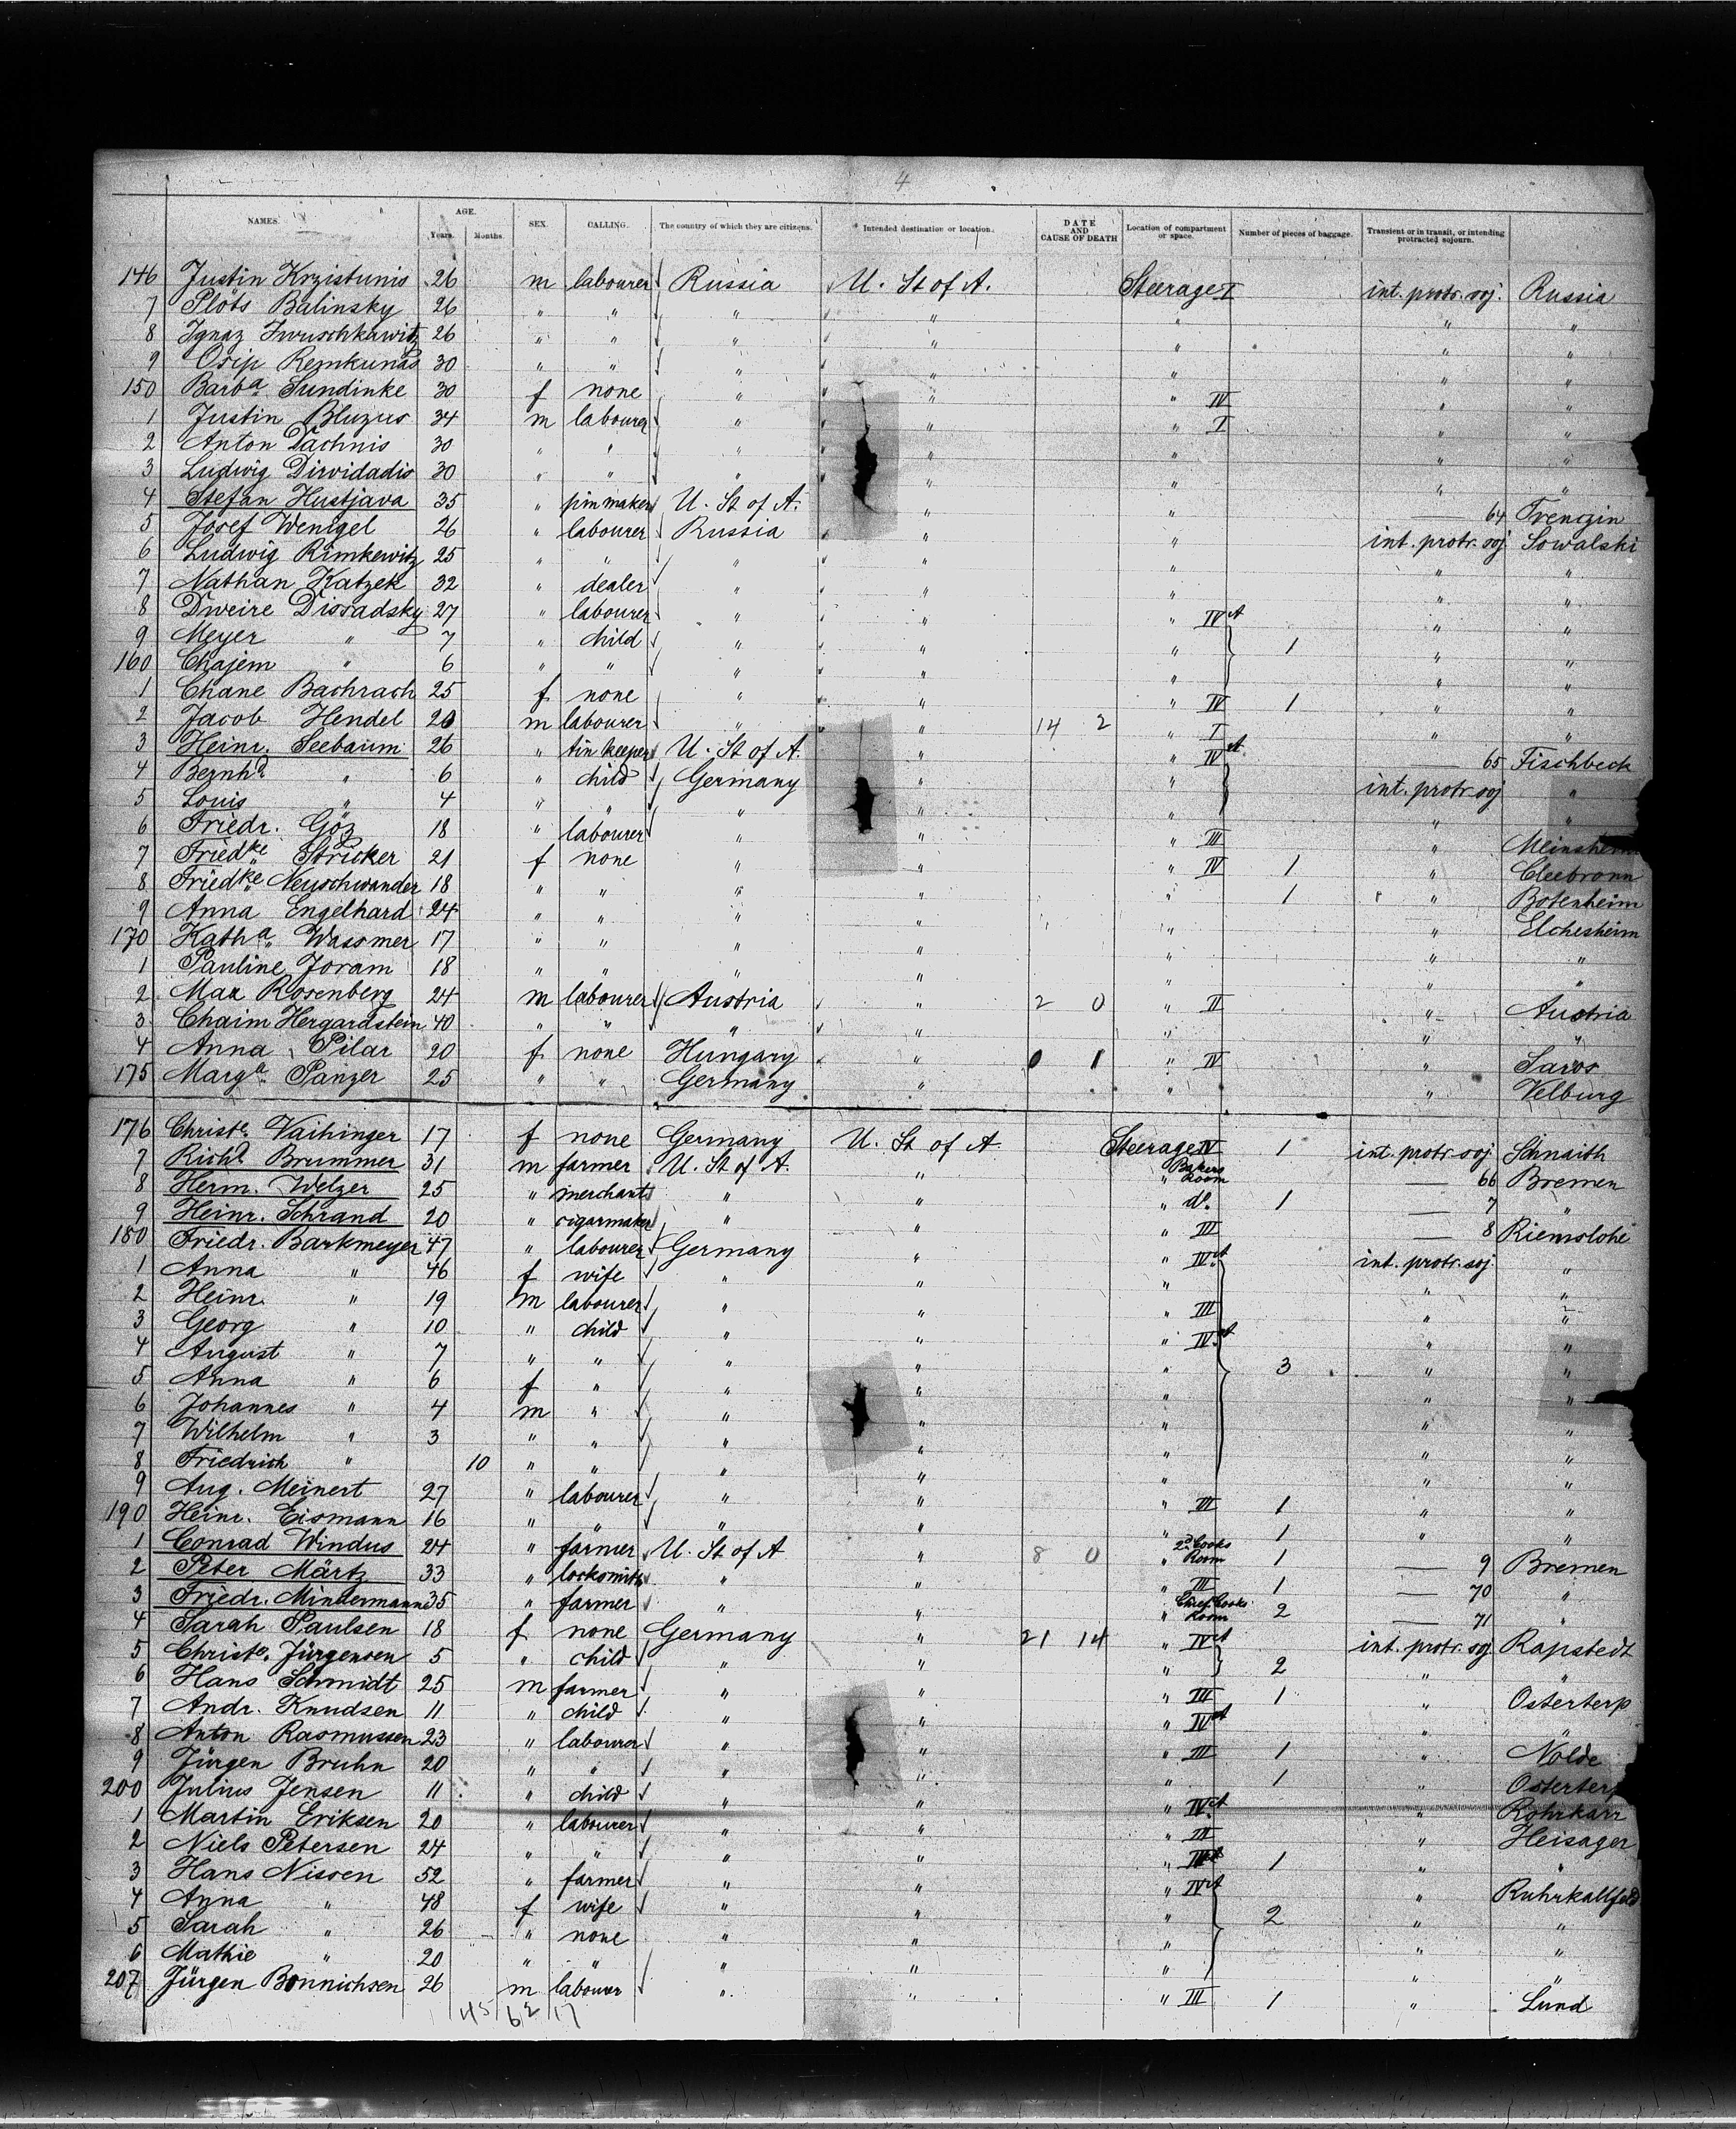 4
NAMES. AGE. Years. Months. SEX. CALLING. The country of which they are citizens. Intended destination or location. DATE AND CAUSE OF DEATH Location of compartment or space. Number of pieces of baggage. Transient or in transit, or intending protracted sojourn.
146 Justin Krzistunis 26 m labourer Russia U. St of A. Steerage I int. protr. soj. Russia
7 Plöts Balinsky 26 " " " " " " "
8 Ignaz 26 " " " " " " "
9 Osip Remkunas 30 " " " " " " "
150 Barba. Sundinke 30 f none " " " IV " "
1 Justin Bluzus 34 m labourer " " " I " "
2 Anton Dachnis 30 " " " " " " "
3 Ludwig Dirvidadis 30 " " " " " " "
4 Stefan Hustjava 35 " pinmaker U. St of A. " " — 64 Trenczin
5 Josef Wenigel 26 " labourer Russia " " int. protr. soj Sowalski
6 Ludwig Rimkewitz 25 " " " " " " "
7 Nathan Katzek 32 " dealer " " " " "
8 Dweire Dissadsky 27 " labourer " " " IV A " "
9 Meyer " 7 " child " " " 1 " "
160 Chajem " 6 " " " " " " "
1 Chane Bachrach 25 f none " " " IV 1 " "
2 Jacob Hendel 20 m labourer " " 14 2 " I " "
3 Heinr. Seebaum 26 " tin keeper U. St of A. " " IV A — 65 Fischbeck
4 Bernhd " 6 " child Germany " " int. protr. soj "
5 Louis " 4 " " " " " " "
6 Friedr. Göz 18 " labourer " " " III "
7 Friedke Stricker 21 f none " " " IV 1 " Cleebronn
8 Friedke Neuschwander 18 " " " " " 1 " Botenheim
9 Anna Engelhard 24 " " " " " " Elchesheim
170 Katha. Wassmer 17 " " " " " " "
1 Pauline Joram 18 " " " " " " "
2 Max Rosenberg 24 m labourer Austria " 2 0 " II " Austria
3 Chaim Hergardstein 40 " " " " " " "
4 Anna Pilar 20 f none Hungary " 0 1 " IV " Saros
175 Marga. Panzer 25 " " Germany " " " Velburg
176 Christe. Vaihinger 17 f none Germany U. St of A. Steerage IV 1 int. protr. soj Schnaith
7 Richd Brummer 31 m farmer U. St of A. " " Bakers Room — 66 Bremen
8 Herm. Welzer 25 " merchant " " " do. 1 — 7 "
9 Heinr. Schrand 20 " cigarmaker " " " III — 8 Riemslohe
180 Friedr. Barkmeyer 47 " labourer Germany " " IV A int. protr. soj. "
1 Anna " 46 f wife " " " " "
2 Heinr. " 19 m labourer " " " III " "
3 Georg " 10 " child " " " IV A " "
4 August " 7 " " " " " 3 " "
5 Anna " 6 f " " " " " "
6 Johannes " 4 m " " " " " "
7 Wilhelm " 3 " " " " " " "
8 Friedrich " 10 " " " " " " "
9 Aug. Meinert 27 " labourer " " " III 1 " "
190 Heinr. Eismann 16 " " " " " 1 " "
1 Conrad Windus 24 " farmer U. St of A " 8 0 " 2d. Cooks Room 1 — 9 Bremen
2 Peter Märtz 33 " locksmith " " " III 1 — 70 "
3 Friedr. Mindermann 35 " farmer " " " Chief Cooks Room 2 — 71 "
4 Sarah Paulsen 18 f none Germany " 21 14 " IV A int. protr. soj. Rapstedt
5 Christe. Jürgensen 5 " child " " " 2 " "
6 Hans Schmidt 25 m farmer " " " III 1 " Osterterp
7 Andr. Knudsen 11 " child " " " IV A " "
8 Anton Rasmussen 23 " labourer " " " III 1 " Nolde
9 Jürgen Bruhn 20 " " " " " 1 " Osterterp
200 Julius Jensen 11 " child " " " IV A " Rohrkarr
1 Martin Eriksen 20 " labourer " " " III " Heisager
2 Niels Petersen 24 " " " " " 1 " "
3 Hans Nissen 52 " farmer " " " IV A " Ruhrkallfeld
4 Anna " 48 f wife " " " 2 " "
5 Sarah " 26 " none " " " " "
6 Mathie " 20 " " " " " " "
207 Jürgen Bonnichsen 26 m labourer " " " III 1 " Lund
45 62 17